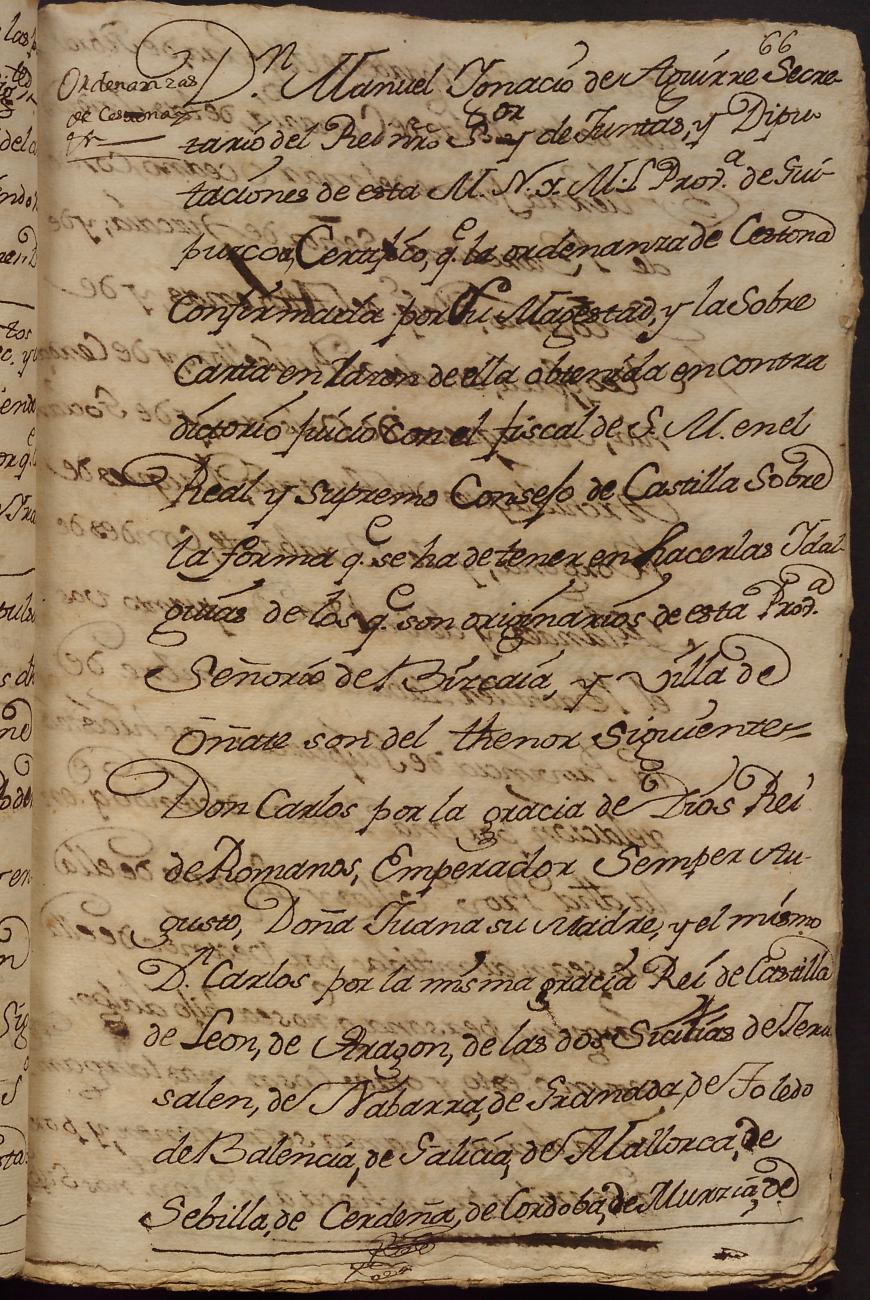 66
Ordenanzas
de Cestona
Dn. Manuel Ignacio de Aguirre Secre-
tario del Rei nro. Sor. y de Juntas, y Dipu-
taciones de esta M. N. y M. L Proa. de Gui-
puzcoa, Certifico, qe. la ordenanza de Cestona
Confirmada por Su Magestad, y la Sobre
Carta en razon de ella obtenida en contra
dictorio juicio con el fiscal de S. M. en el
Real y Supremo Consejo de Castilla Sobre
la forma qe. se ha de tener en hacer las Idal-
guias de los qe. son originarios de esta Prova.
Señorio de Bizcaia, y Villa de
Oñate son del thenor Siguiente=
Don Carlos por la gracia de Dios Rei
de Romanos, Emperador Semper Au-
gusto, Doña Juana su Madre, y el mismo
Dn. Carlos por la misma gracia Rei de Castilla
de Leon, de Aragon, de las dos Sicilias de Jeru
salen, de Nabarra, de Granada, de Toledo
de Balencia, de Galicia, de Mallorca, de
Sebilla, de Cerdeña, de Cordoba, de Murzia, de